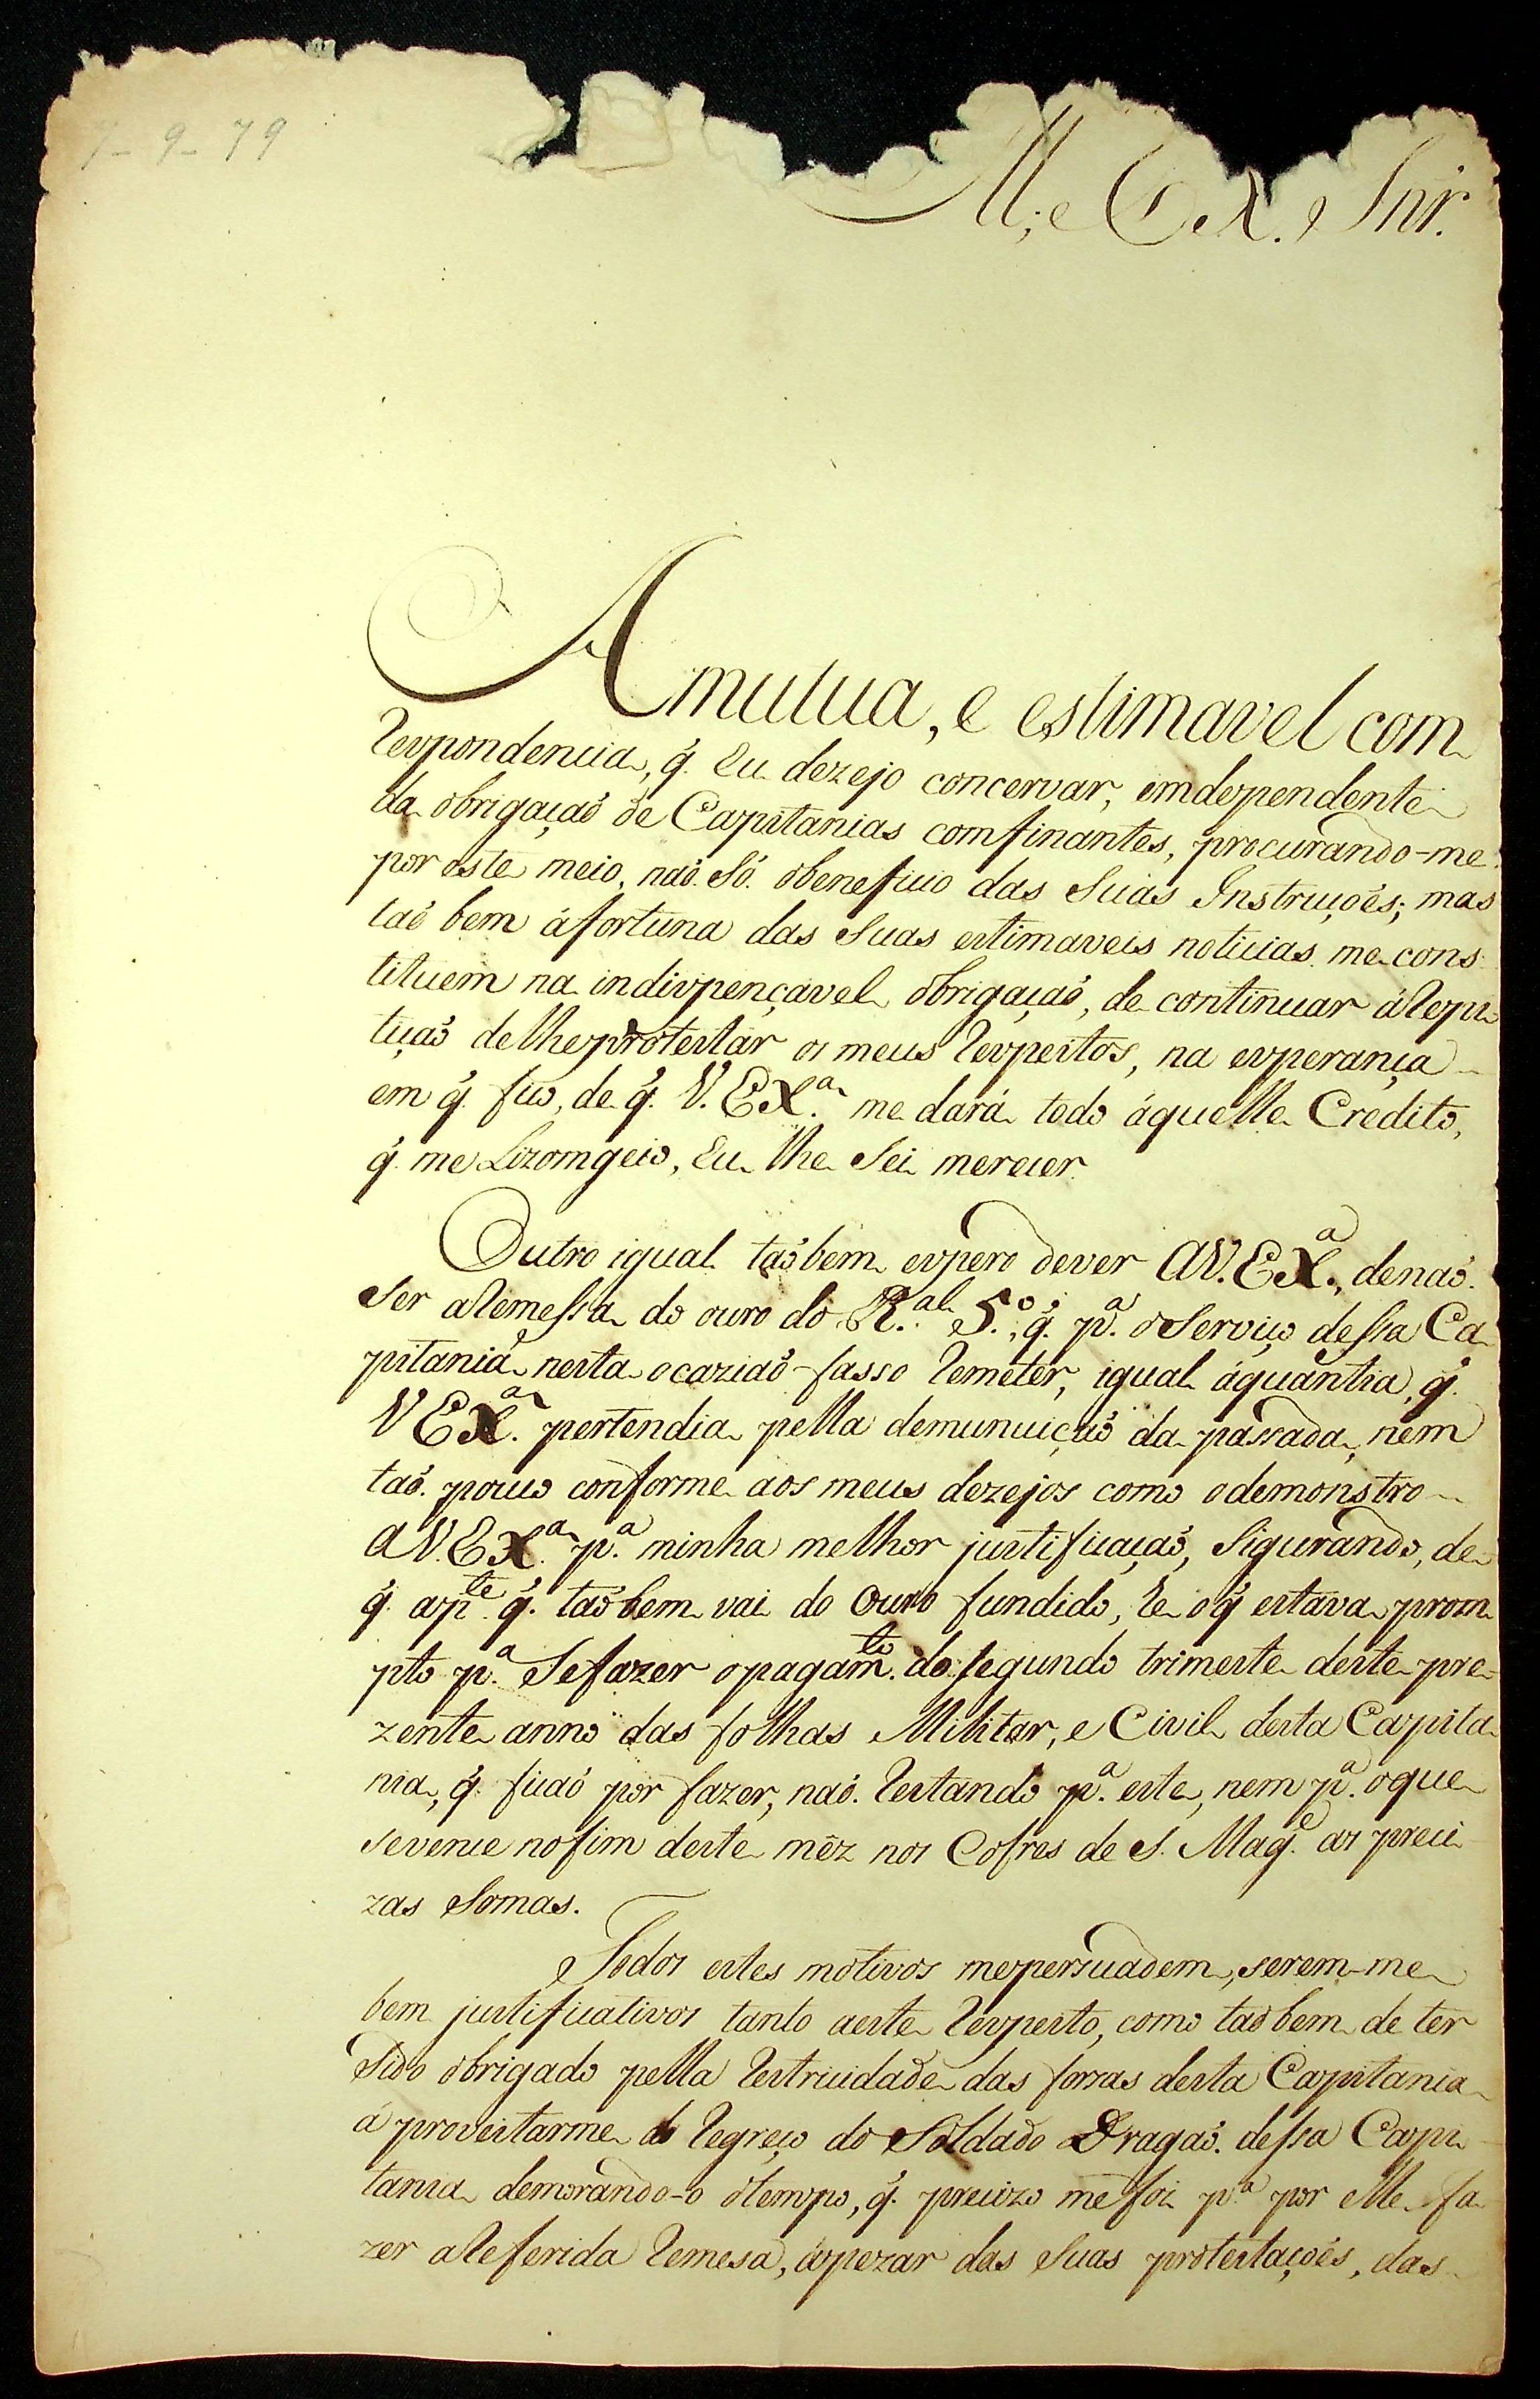 7-9-79
Il. e Ex. Snr.
A mutua, e estimavel com
respondencia, q̃. Eu dezejo concervar, emdependente
da obrigaçaõ de Capitanias comfinantes, procurando-me
por este meio, naõ. Só. obeneficio das Suas Instruçoẽs; mas
taõ bem áfortuna das Suas estimaveis noticias me cons
tituem na indispençavel obrigaçaõ, de continuar áRepi
tiçaõ delheprotestar os meus respeitos, na esperança
em q̃. fico, de q̃. V. EXª. me dará todo áquelle Credito,
q̃. me Lizomgeio, Eu lhe Sei merecer.
Outro igual taõbem espero dever AV. EXª., denaõ.
Ser aRemessa do ouro do R.al 5.º, q̃. pª. oServiço dessa Ca
pitania nesta ocaziaõ fasso Remeter, igual áquantia, q̃.
V EXª. pertendia pella demunuiçaõ da passada, nem
taõ. pouco conforme aos meus dezejos como odemonstro
AV. EXª. pª. minha melhor justificaçaõ, Sigurando, de
q̃. ap.te q̃. taõbem vai do Ouro fundido, he oq̃ estava prom
pto pª. Sefazer opagam.to do segundo trimeste deste pre-
zente anno das folhas Militar, e Civil desta Capita
nia, q̃. ficaõ por fazer, naõ. Restando pª. este, nem pª. oque
sevence nofim deste mêz nos Cofres de S. Mag.e as preci
zas Somas.
Todos estes motivos mepersuadem, serem-me
bem justificativos tanto aeste respeito, como taõbem de ter
Sido obrigado pella Restricidade das forsas desta Capitania
á proveitarme do Regreço do Soldado Dragaõ. dessa Capi
tania demorando-o otempo, q̃. precizo me foi pª. por Elle fa
zer aReferida Remesa, ápezar das Suas protestaçoẽs, das